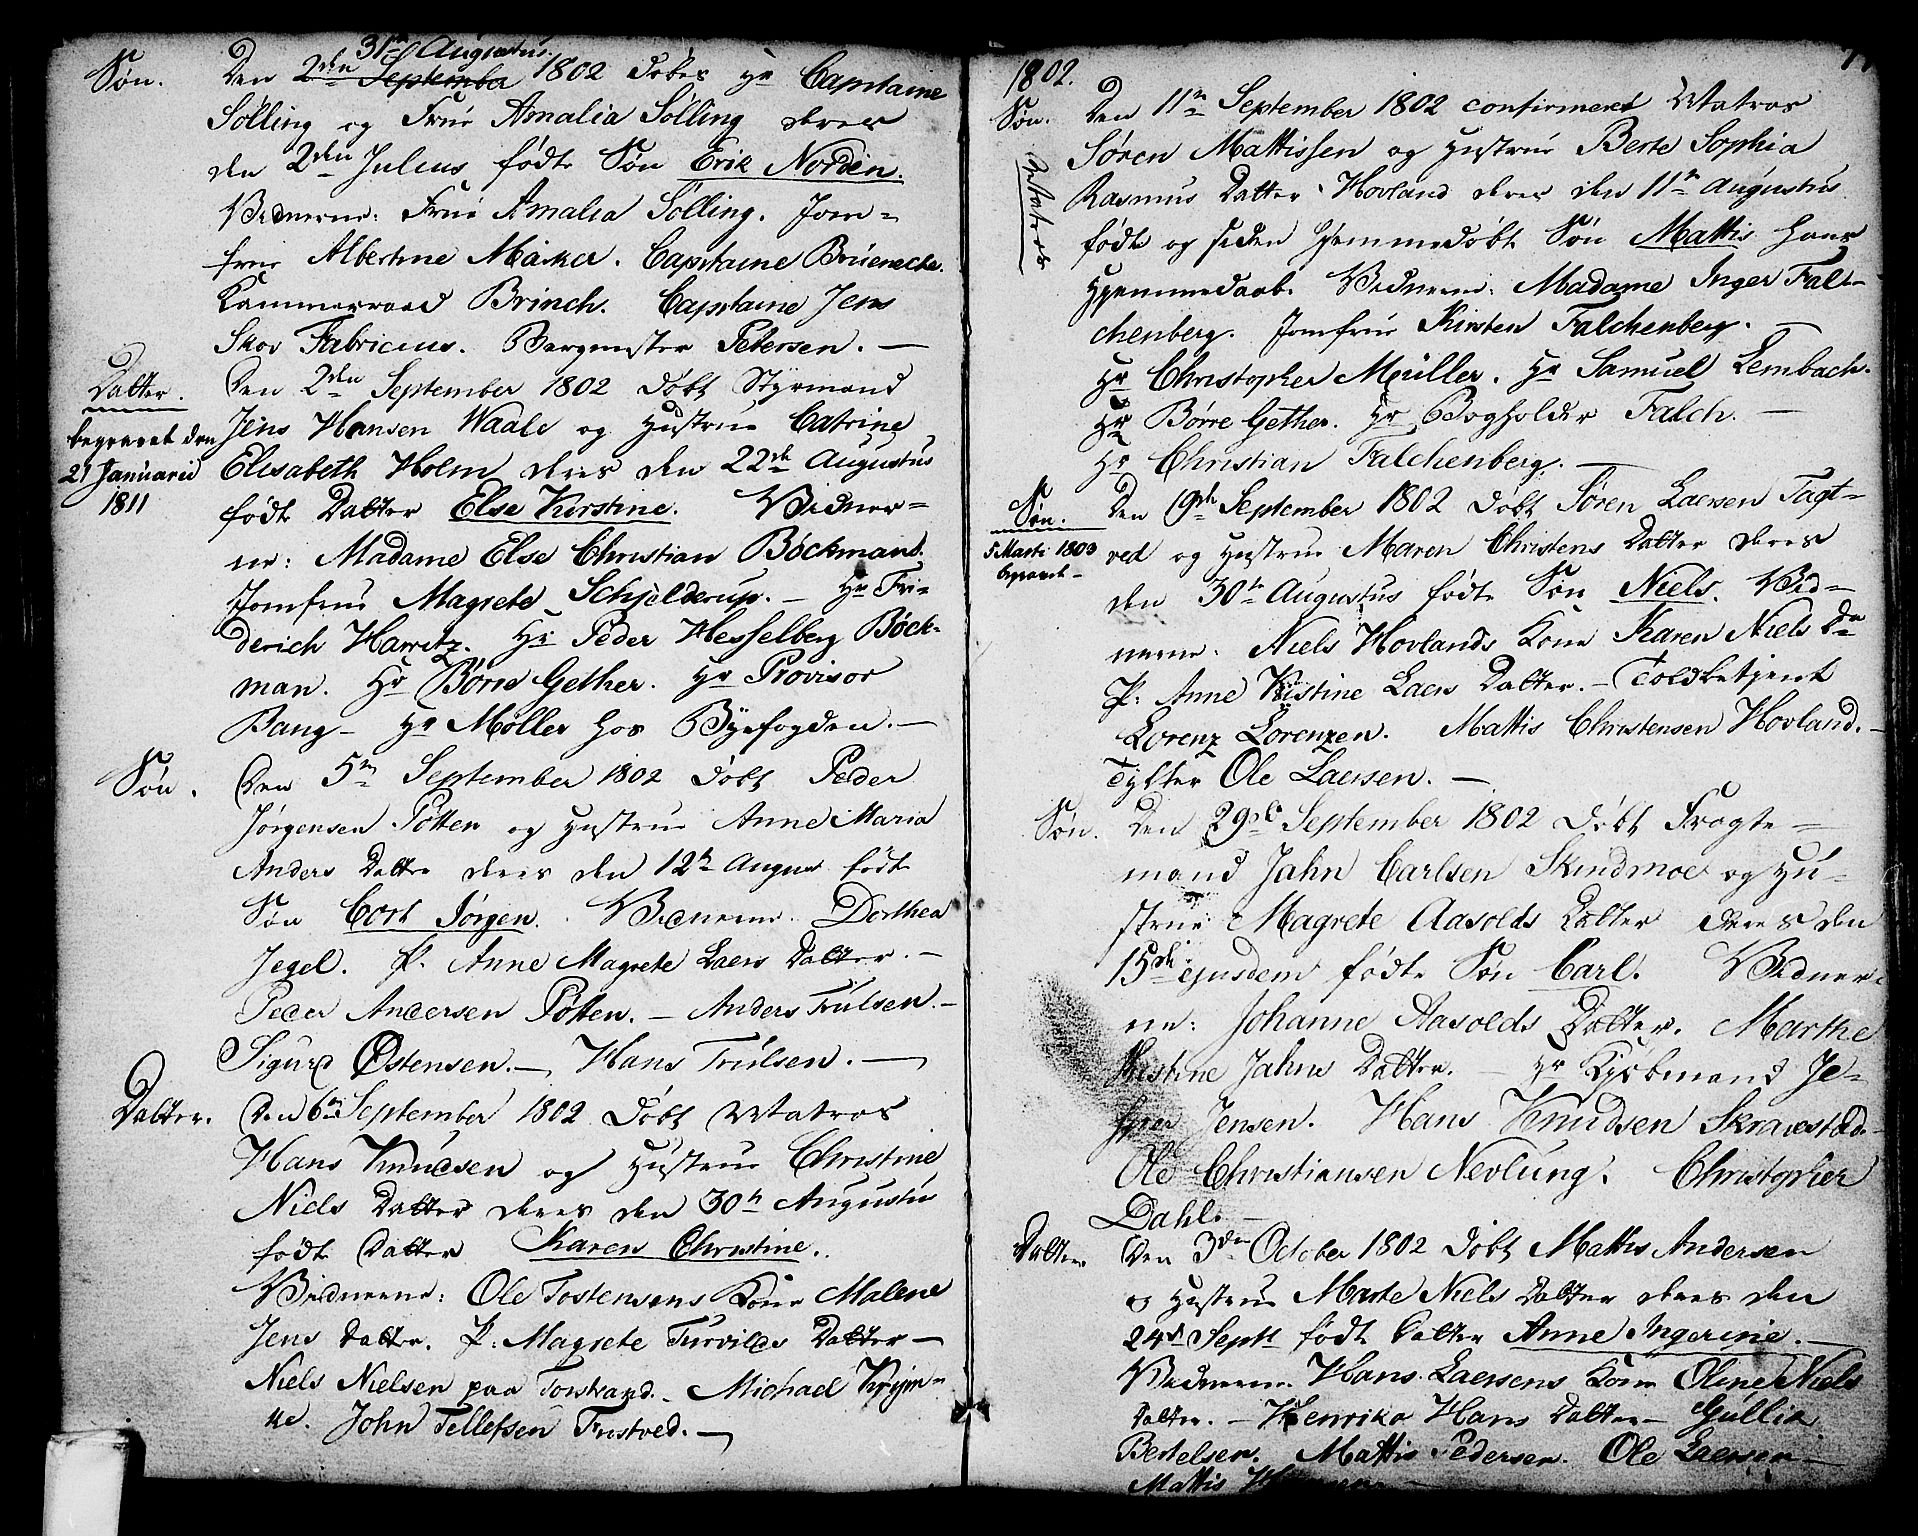 31te Augustus
Søn. Den 2den September 1802 døbes Hr Capitaine
Sölling og Frue Amalia Sölling deres
den 2den Julius födte Søn Erik Norden.
Vidnerne: Frue Amalia Sölling. Jom-
frue Albertine Maiker. Capitaine Brüeneche.
Kammerraad Brinch. Capitaine Jens
Skov Fabricius. Borgmester Petersen. —
Datter. Den 2den September 1802 döbt Styrmand
begravet den 21 Januarii 1811
Jens Hansen Waale og Hustrue Catrine
Elisabeth Holm deres den 22de Augustus
födte Datter Else Kirstine. Vidner-
ne: Madame Else Christian Böckmand.
Jomfrue Magrete Schjelderup. — Hr Fri-
derich Harritz. Hr Peder Hesselberg Böck-
man. Hr Börre Gether. Hr Provisor
Bang — Hr Møller hos Byefogden. —
Søn. Den 5te September 1802 döbt Peder
Jörgensen Pötten og Hustrue Anne Maria
Anders Datter deres den 12te August födte
Søn Cort Jörgen. Vidnerne. Dorthea
Jegel. P. Anne Magrete Laers Datter. —
Peder Andersen Pötten. — Anders Trulsen. —
Sigurd Østensen. — Hans Trulsen. —
Datter. Den 6te September 1802 döbt Matros
Hans Knudsen og Hustrue Christine
Niels Datter deres den 30te Augustus
födte Datter Karen Christine.
Vidnerne: Ole Tostensens Kone Malene
Jens Datter. P. Magrete Turvilds Datter —
Niels Nielsen paa Torstrand. Michael
John Tellefsen Frostved. —
1802.
Søn. Den 11te September 1802 confirmeret Matros
Matros
Sören Mattissen og Hustrue Berte Sophia
Rasmus Datter Hovland deres den 11te Augustus
födte og siden hjemmedöbt Søn Mattis hans
Hjemmedaab. Vidnerne: Madame Inger Fal-
chenberg. Jomfrue Kirsten Falchenberg. —
Hr Christopher Müller. Hr Samuel Lembach.
Hr Börre Gether. Hr Bogholder Falch. —
Hr Christian Falchenberg. —
Søn. Den 19de September 1802 döbt Sören Laersen Tagt-
5 Marti 1803 begravet —
ved og Hustrue Maren Christens Datter deres
den 30te Augustus födte Søn Niels. Vid-
nerne. Niels Hovlands Kone Karen Niels Dr
P. Anne Kistine Laers Datter. — Toldbetjent
Lorenz Lorenzen. Mattis Christensen Hovland. —
Ole Laersen. —
Søn. Den 29de September 1802 döbt Fragte-
mand Jahn Carlsen Skindmoe og Hu-
strue Magrete Aasolds Datter deres den
15de ejusdem födte Søn Carl. Vidner-
ne: Johanne Aasolds Datter. Marthe
Kistine Jahns Datter. — Hr Kjöbmand Je-
Jensen. Hans Knudsen Skravestad. —
Ole Christiansen Nevlung. Christopher
Dahl. —
Datter Den 3die October 1802 döbt Mattis Andersen
og Hustrue Marte Niels Datter deres den
24de Sept födte Datter Anne Ingerine. —
Vidnerne. Hans Laersens Kone Oline Niels
Datter. — Henrika Hans Datter — Gullik
Bertelsen. Mattis Pedersen. Ole Laersen —
Mattis